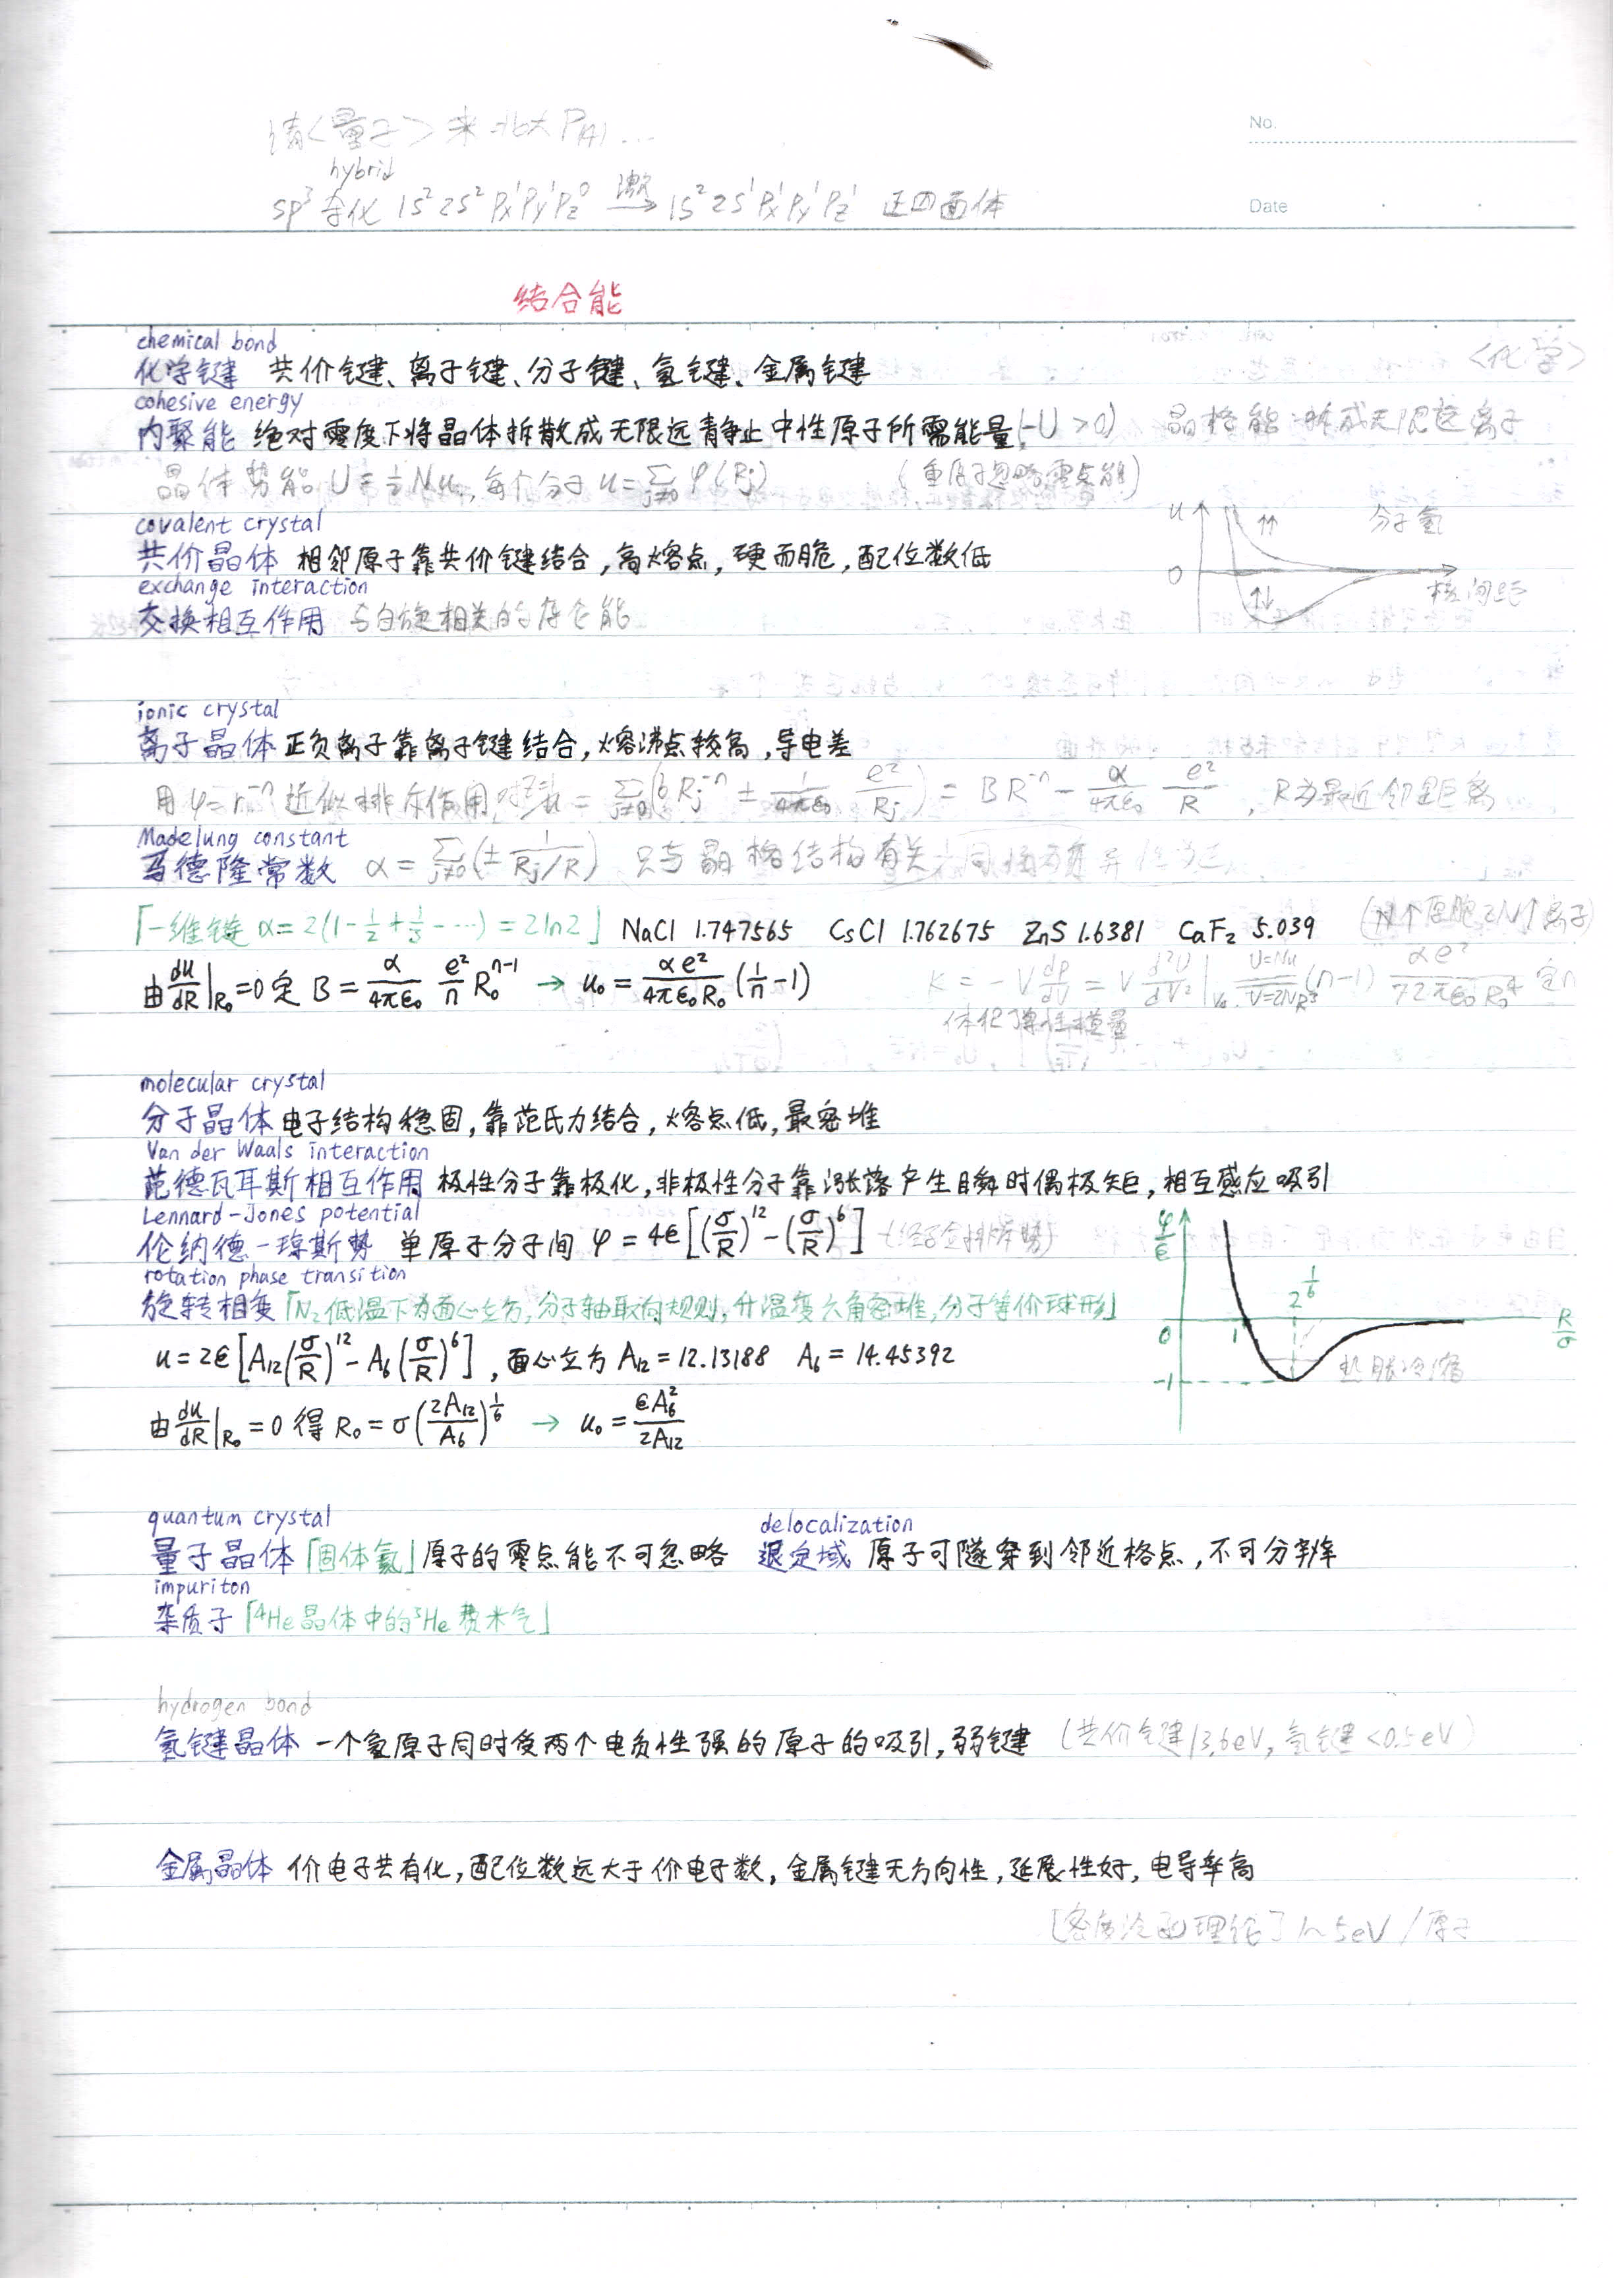 No.
hybrid
sp³杂化 1s² 2s² Px¹Py¹Pz⁰ 激发→ 1s² 2s¹ Px¹Py¹Pz¹ 正四面体
Date
结合能
chemical bond
化学键 共价键、离子键、分子键、氢键、金属键
<化学>
cohesive energy
内聚能 绝对零度下将晶体拆散成无限远静止中性原子所需能量(-U>0) 晶格能:拆成无限远离子
晶体势能 U=½Nu, 每个分子 u=∑_{j≠0} φ(Rj) (重原子忽略零点能)
covalent crystal
共价晶体 相邻原子靠共价键结合,高熔点,硬而脆,配位数低
exchange interaction
交换相互作用 与自旋相关的库仑能
u ↑↑ 分子氢
0 ↑↓ 核间距
ionic crystal
离子晶体 正负离子靠离子键结合,熔沸点较高,导电差
用φ=r⁻ⁿ近似排斥作用, u=∑_{j≠0}(b Rj⁻ⁿ ± 1/4πε₀ e²/Rj) = BR⁻ⁿ - α/4πε₀ e²/R , R为最近邻距离
Madelung constant
马德隆常数 α=∑_{j≠0}(± 1/(Rj/R)) 只与晶格结构有关
「一维链 α=2(1-½+⅓-…)=2ln2」 NaCl 1.747565 CsCl 1.762675 ZnS 1.6381 CaF₂ 5.039 (N个原胞2N个离子)
由 du/dR|R₀=0 定 B= α/4πε₀ e²/n R₀ⁿ⁻¹ → u₀= αe²/4πε₀R₀ (1/n -1) K=-V dp/dV = V d²U/dV²|V₀ U=Nu V=2NR³ (n-1) αe²/72πε₀R₀⁴ 定n
体积弹性模量
molecular crystal
分子晶体 电子结构稳固,靠范氏力结合,熔点低,最密堆
Van der Waals interaction
范德瓦耳斯相互作用 极性分子靠极化,非极性分子靠涨落产生瞬时偶极矩,相互感应吸引
Lennard-Jones potential
伦纳德-琼斯势 单原子分子间 φ=4ϵ[(σ/R)¹²-(σ/R)⁶]
rotation phase transition
旋转相变「N₂低温下为面心立方,分子轴取向规则,升温变六角密堆,分子等价球形」
u=2ϵ[A₁₂(σ/R)¹²-A₆(σ/R)⁶] , 面心立方 A₁₂=12.13188 A₆=14.45392
由 du/dR|R₀=0 得 R₀=σ(2A₁₂/A₆)^{1/6} → u₀= ϵA₆²/2A₁₂
φ/ϵ
2^{1/6}
0 1 R/σ
-1 热胀冷缩
quantum crystal delocalization
量子晶体「固体氦」原子的零点能不可忽略 退定域 原子可隧穿到邻近格点,不可分辨
impuriton
杂质子「⁴He晶体中的³He费米气」
hydrogen bond
氢键晶体 一个氢原子同时受两个电负性强的原子的吸引,弱键 (共价键13.6eV,氢键<0.5eV)
金属晶体 价电子共有化,配位数远大于价电子数,金属键无方向性,延展性好,电导率高
[密度泛函理论] 1~5eV/原子